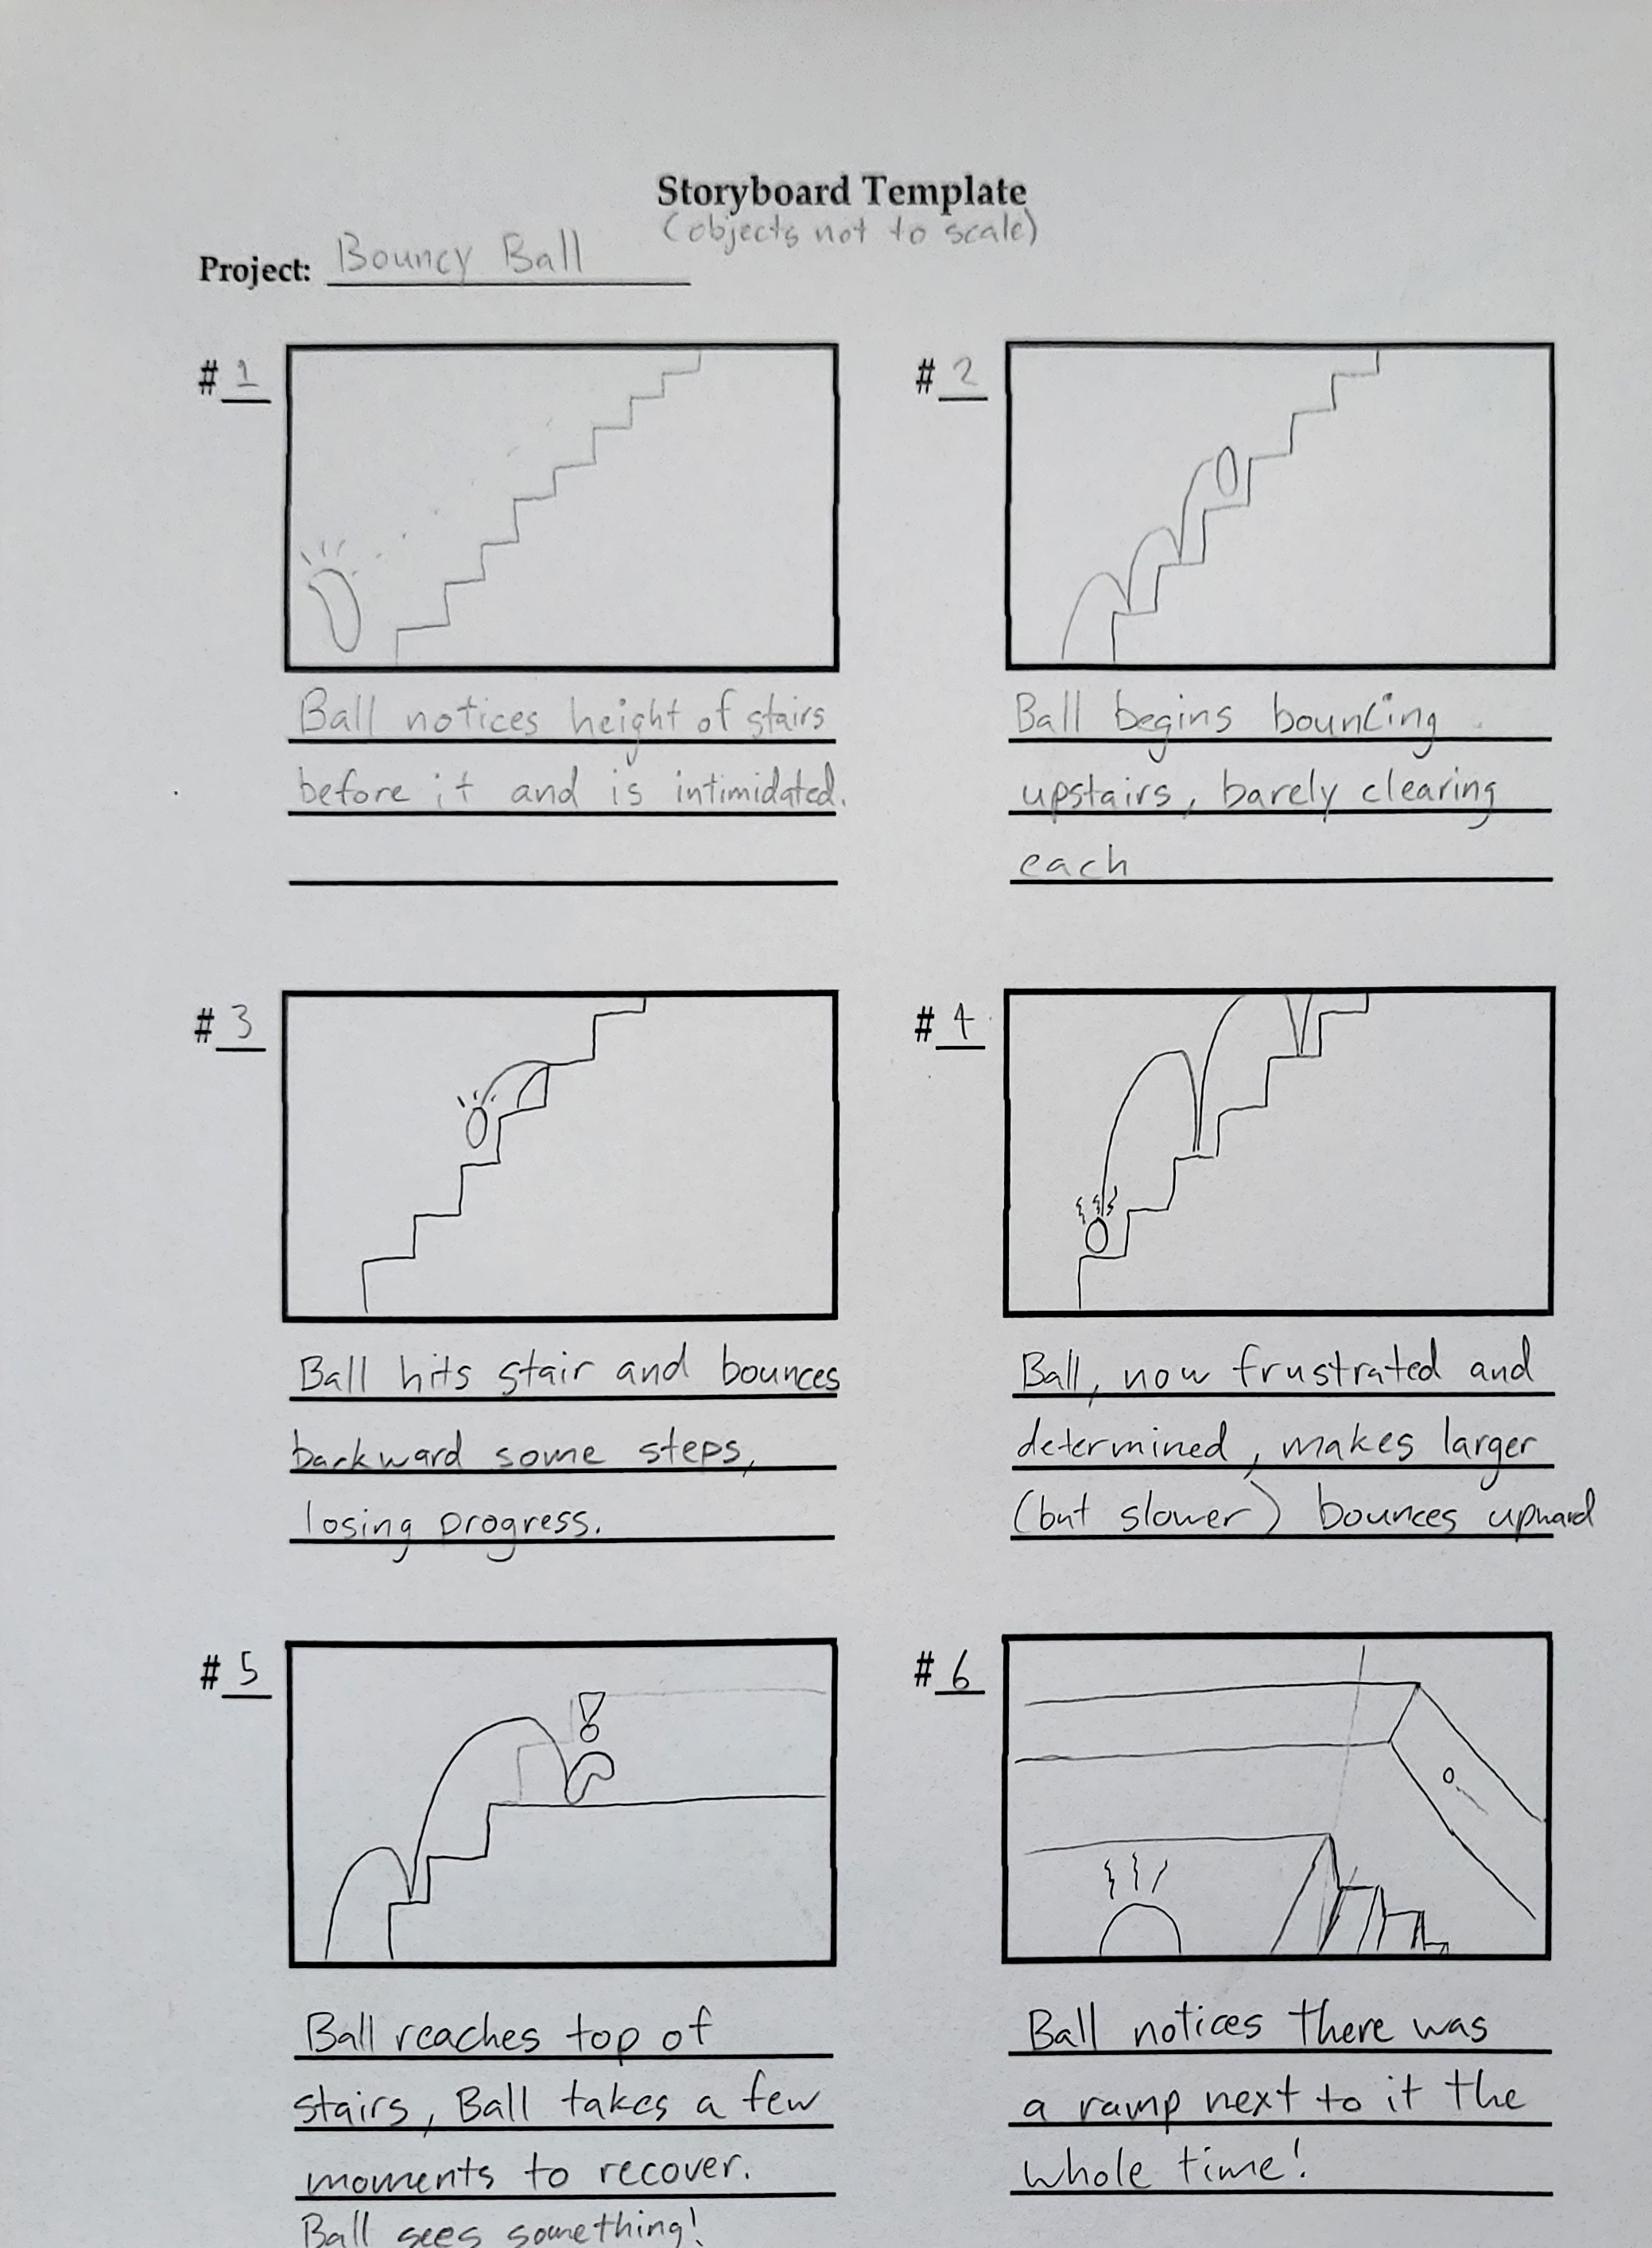 Storyboard Template
(objects not to scale)
Project: Bouncy Ball
# 1
Ball notices height of stairs
before it and is intimidated.
# 2
Ball begins bouncing
upstairs, barely clearing
each
# 3
Ball hits stair and bounces
backward some steps,
losing progress.
# 4
Ball, now frustrated and
determined, makes larger
(but slower) bounces upward
# 5
Ball reaches top of
stairs, Ball takes a few
moments to recover.
Ball sees something!
# 6
Ball notices there was
a ramp next to it the
whole time!